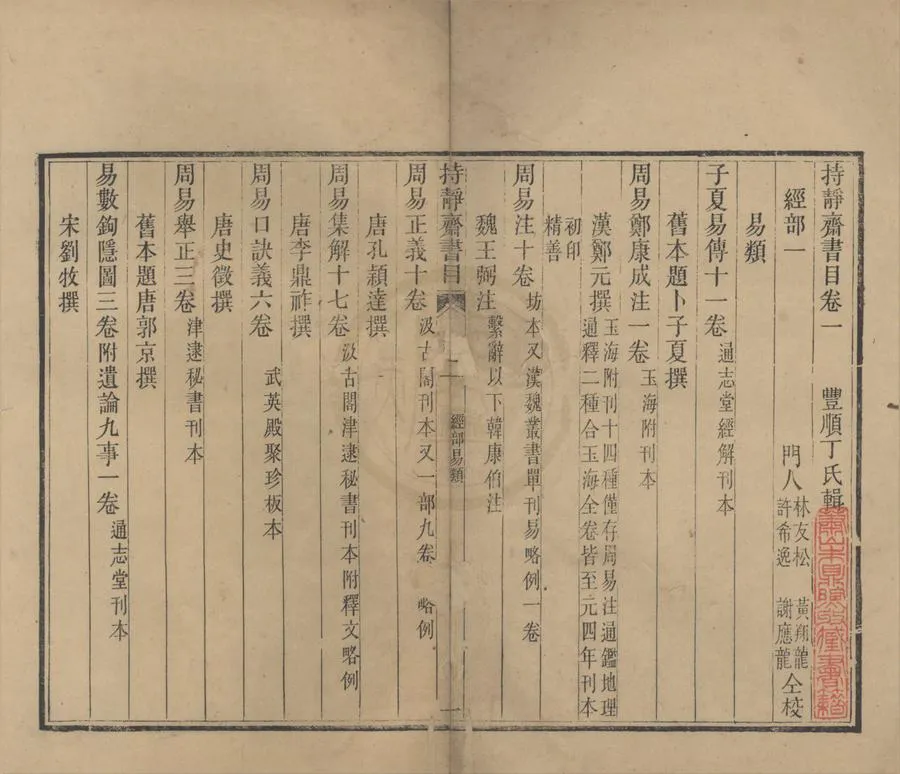 持靜齋書目卷一 豐順丁氏輯
經部一 門人林友松 許希逸 黃翔龍 謝應龍仝校
易類
子夏易傳十一卷通志堂經解刊本
舊本題卜子夏撰
周易鄭康成注一卷玉海附刊本
漢鄭元撰玉海附刊十四種僅存周易注通鑑地理通釋二種合玉海全卷皆至元四年刊本
初印精善
周易注十卷坊本又漢魏叢書單刊易略例一卷
魏王弼注繫辭以下韓康伯注
持靜齋書目 二 經部易類 一
周易正義十卷汲古閣刊本又一部九卷 略例
唐孔穎達撰
周易集解十七卷汲古閣津逮秘書刊本附釋文略例
唐李鼎祚撰
周易口訣義六卷 武英殿聚珍板本
唐史徵撰
周易舉正三卷津逮秘書刊本
舊本題唐郭京撰
易數鉤隱圖三卷附遺論九事一卷通志堂刊本
宋劉牧撰